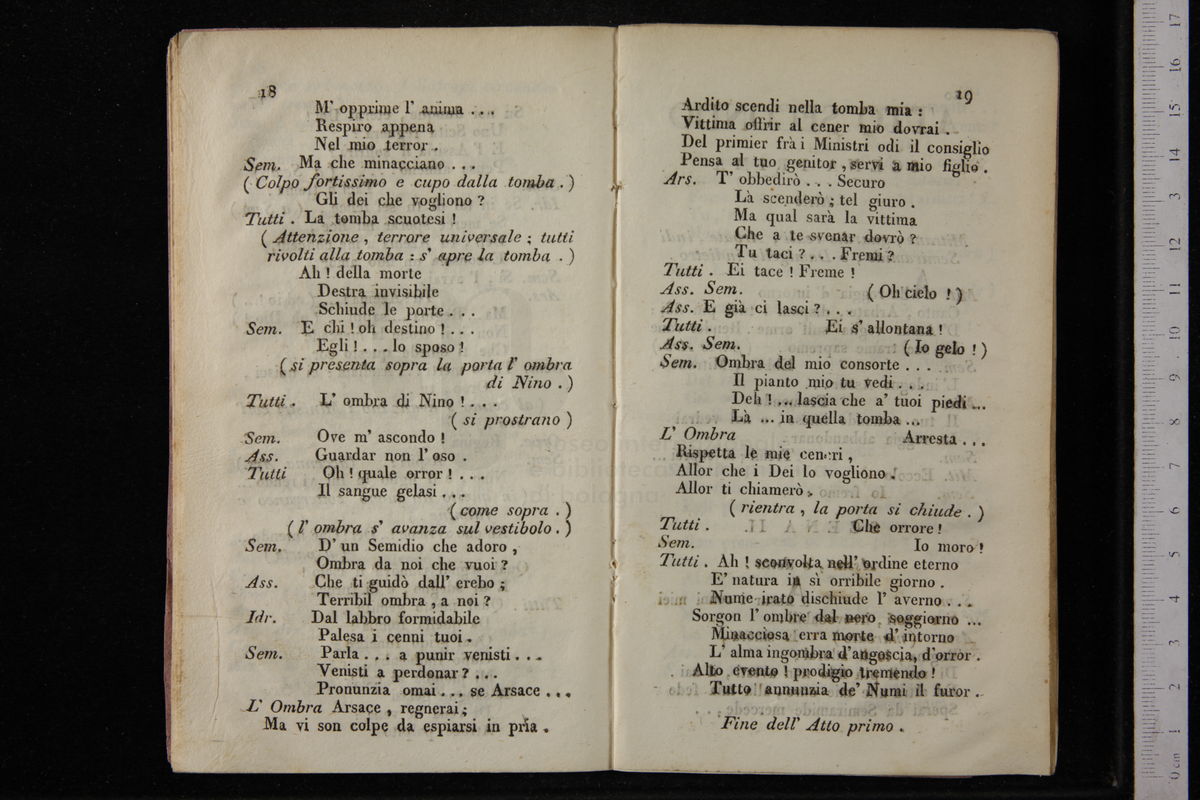 18
M' opprime l' anima . . .
Respiro appena
Nel mio terror .
Sem. Ma che minacciano . . .
( Colpo fortissimo e cupo dalla tomba . )
Gli dei che vogliono ?
Tutti . La tomba scuotesi !
( Attenzione , terrore universale ; tutti
rivolti alla tomba : s' apre la tomba . )
Ah ! della morte
Destra invisibile
Schiude le porte . . .
Sem. E chi ! oh destino ! . . .
Egli ! . . . lo sposo !
( si presenta sopra la porta l' ombra
di Nino . )
Tutti . L' ombra di Nino ! . . .
( si prostrano )
Sem. Ove m' ascondo !
Ass. Guardar non l' oso .
Tutti Oh ! quale orror ! . . .
Il sangue gelasi . . .
( come sopra . )
( l' ombra s' avanza sul vestibolo . )
Sem. D' un Semidio che adoro ,
Ombra da noi che vuoi ?
Ass. Che ti guidò dall' erebo ;
Terribil ombra , a noi ?
Idr. Dal labbro formidabile
Palesa i cenni tuoi .
Sem. Parla . . . a punir venisti . . .
Venisti a perdonar ? . . .
Pronunzia omai . . . se Arsace . . .
L' Ombra Arsace , regnerai ;
Ma vi son colpe da espiarsi in pria .
19
Ardito scendi nella tomba mia :
Vittima offrir al cener mio dovrai .
Del primier frà i Ministri odi il consiglio
Pensa al tuo genitor , servi a mio figlio .
Ars. T' obbedirò . . . Securo
Là scenderò ; tel giuro .
Ma qual sarà la vittima
Che a te svenar dovrò ?
Tu taci ? . . . Fremi ?
Tutti . Ei tace ! Freme !
Ass. Sem. ( Oh cielo ! )
Ass. E già ci lasci ? . . .
Tutti . Ei s' allontana !
Ass. Sem. ( Io gelo ! )
Sem. Ombra del mio consorte . . .
Il pianto mio tu vedi . . .
Deh ! ... lascia che a' tuoi piedi ...
Là ... in quella tomba ...
L' Ombra Arresta . . .
Rispetta le mie ceneri ,
Allor che i Dei lo vogliono .
Allor ti chiamerò .
( rientra , la porta si chiude . )
Tutti . Che orrore !
Sem. Io moro !
Tutti . Ah ! sconvolta nell' ordine eterno
E' natura in sì orribile giorno .
Nume irato dischiude l' averno . . .
Sorgon l' ombre dal nero soggiorno ...
Minacciosa erra morte d' intorno
L' alma ingombra d'angoscia, d'orror .
Alto evento ! prodigio tremendo !
Tutto annunzia de' Numi il furor .
Fine dell' Atto primo .